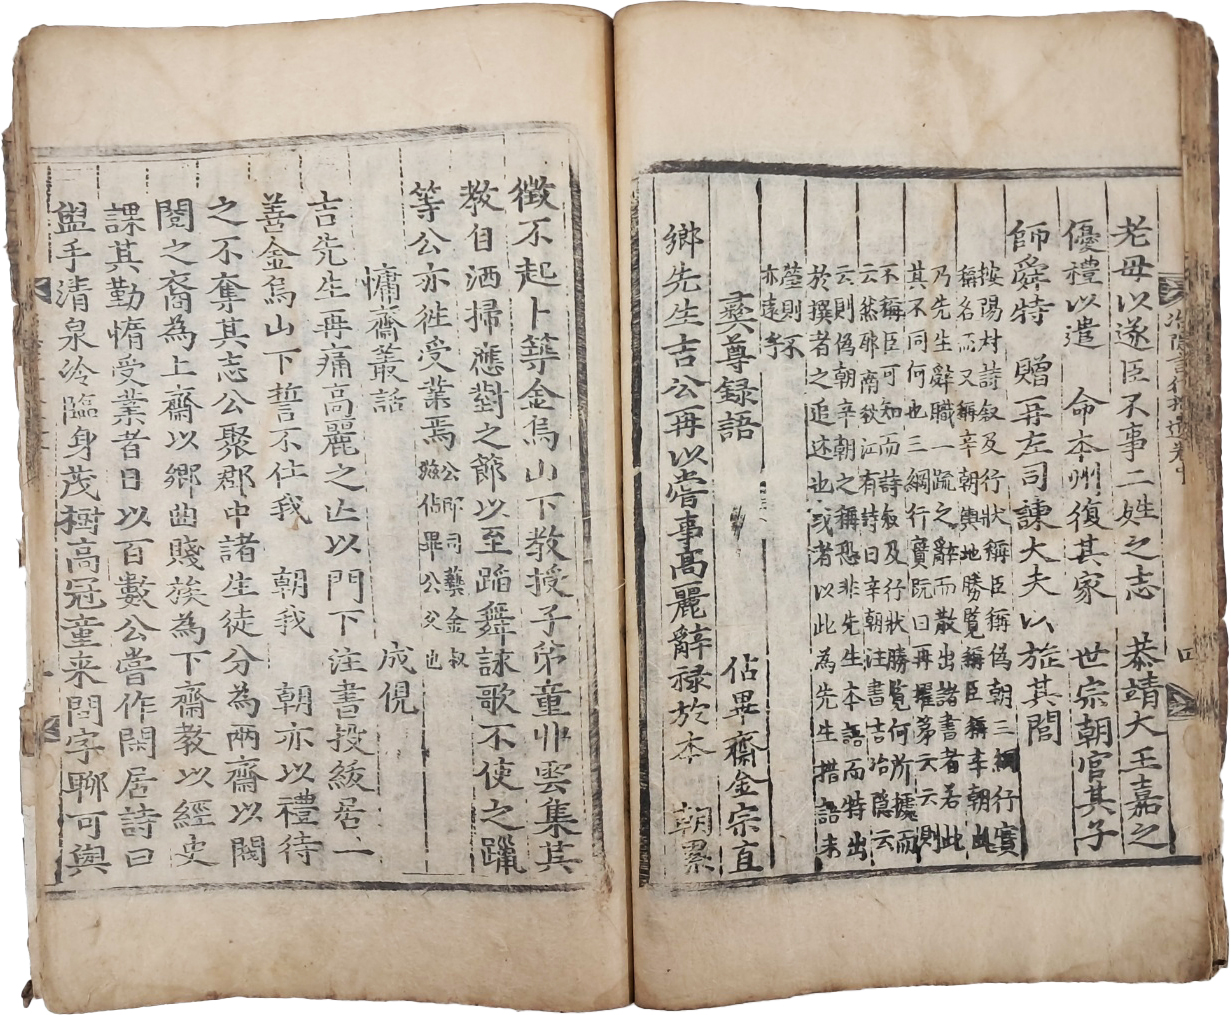 老母以遂臣不事二姓之志　恭靖大王嘉之
優禮以遣　命本州復其家　世宗朝官其子
師舜特　贈再左司諫大夫以旌其閭
按陽村詩叙及行狀稱臣稱僞朝三綱行實
稱名而又稱辛朝輿地勝覧稱臣稱辛朝此
乃先生辭職一疏之辭而散出諸書者若此
其不同何也三綱行實既曰再擢第云云則
不稱臣可知而詩叙及行狀勝覧何所據而
云然耶南秋江有詩曰辛朝注書吉冶隱云
云則僞朝辛朝之稱恐非先生本語而特出
於撰者之追述也或者以此為先生措語未
瑩則不
亦遠乎
彛尊録語　　佔畢齋金宗直
鄉先生吉公再以嘗事高麗辭禄於本　朝累
徴不起卜築金烏山下教授子弟童丱雲集其
教自洒掃應對之節以至蹈舞詠歌不使之躐
等公亦徃受業焉公即司藝金叔
滋佔畢公父也
慵齋叢話　　成俔
吉先生再痛高麗之亾以門下注書投紱居一
善金烏山下誓不仕我　朝我　朝亦以禮待
之不奪其志公聚郡中諸生徒分為兩齋以閥
閱之裔為上齋以鄉曲賤族為下齋教以經史
課其勤惰受業者日以百數公嘗作閑居詩曰
盥手清泉冷臨身茂樹高冠童来問字聊可與